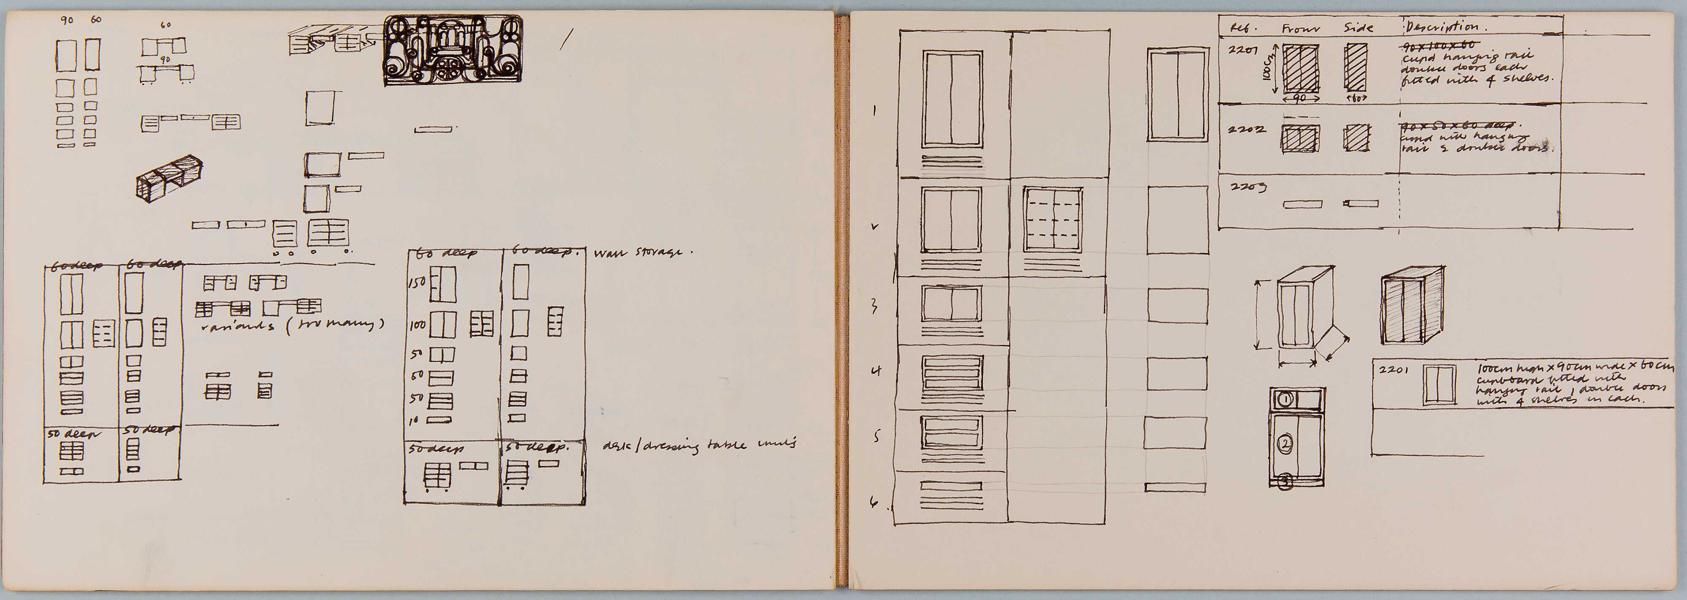 90 60
60
90
60 deep 60 deep
variants (too many)
50 deep 50 deep
60 deep 60 deep. wall storage.
150
100
50
60
50
10
50 deep 50 deep. desk/dressing table units
1
2
3
4
5
6.
Ref. Front Side Description.
2201
100cm
90
60
90x100x60
cupd hanging rail
double doors each
fitted with 4 shelves.
2202
90x50x60 deep.
cupd with hanging
rail & double doors.
2203
1
2
3
2201
100cm high x 90cm wide x 60cm
cupboard fitted with
hanging rail, double doors
with 4 shelves in each.